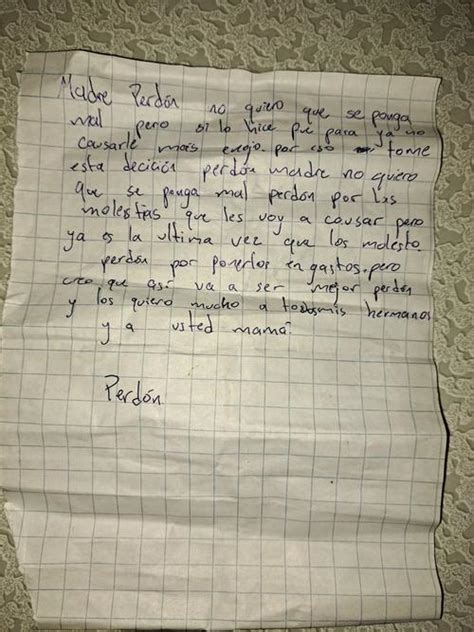 Madre Perdón no quiero que se ponga
mal pero si lo hice fue para ya no
causarle más enojo por eso tome
esta decición perdón madre no quiero
que se ponga mal perdón por las
molestias que les voy a causar pero
ya es la ultima vez que los molesto.
perdón por ponerlos en gastos. pero
creo que así va a ser mejor perdón
y los quiero mucho a todos mis hermanos
y a usted mamá.
Perdón